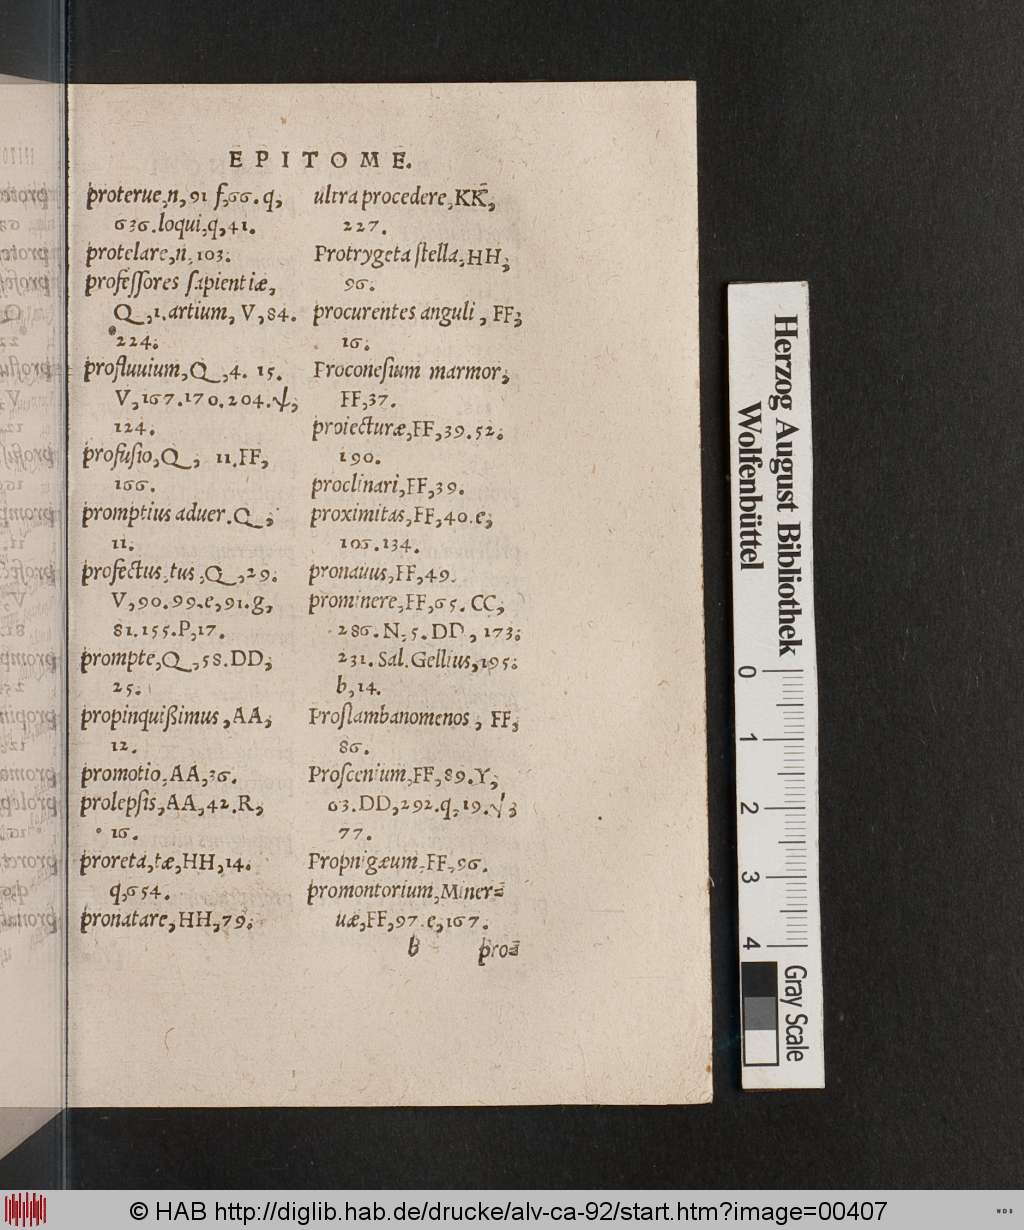 EPITOME.
proterue,n,91 f,66.q,
636.loqui,q,41.
protelare,n,103.
professores sapientiæ,
Q,1.artium, V,84.
224.
profluuium,Q,4. 15.
V,167.170.204.ψ,
124.
profusio,Q, 11.FF,
166.
promptius aduer.Q,
11.
profectus,tus,Q,29.
V,90.99.e,91.g,
81.155.P,17.
prompte,Q,58.DD,
25.
propinquißimus,AA,
12.
promotio,AA,36.
prolepsis,AA,42.R,
16.
proreta,tæ,HH,14.
q,654.
pronatare,HH,79.
ultra procedere,KK̄,
227.
Protrygeta stella,HH,
96.
procurentes anguli, FF,
16.
Proconesium marmor,
FF,37.
proiecturæ,FF,39.52.
190.
proclinari,FF,39.
proximitas,FF,40.e,
106.134.
pronauus,FF,49.
prominere,FF,65.CC,
286.N,5.DD,173.
231.Sal.Gellius,195.
b,14.
Proslambanomenos, FF,
86.
Proscenium,FF,89.Y,
63.DD,292.q,19.ψ,
77.
Propnigæum,FF,96.
promontorium,Miner=
uæ,FF,97.e,167.
b pro=
Herzog August Bibliothek
Wolfenbüttel
0 1 2 3 4
Gray Scale
© HAB http://diglib.hab.de/drucke/alv-ca-92/start.htm?image=00407